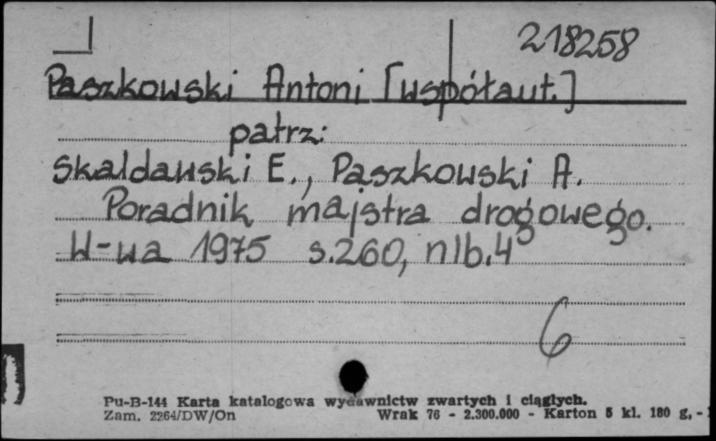 218258
Paszkowski Antoni [współaut.]
patrz:
Skaldawski E., Paszkowski A.
Poradnik majstra drogowego.
W-wa 1975 s.260, nlb.4
6
Pu-B-144 Karta katalogowa wydawnictw zwartych i ciągłych.
Zam. 2264/DW/On Wrak 76 - 2.300.000 - Karton 5 kl. 180 g, -